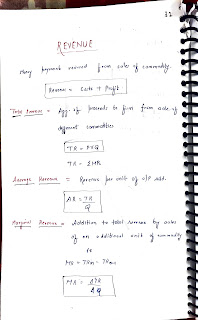 32
REVENUE
Money payment received from sales of commodity.
Revenue = Costs + Profit
Total Revenue = Agg. of proceeds to firm from sale of
different commodities
TR = P×Q
TR = ΣMR
Average Revenue = Revenue per unit of o/p sold.
AR = TR
Q
Marginal Revenue = Addition to total revenue by sales
of an additional unit of commodity
MR = TRn - TRn-1
MR = ΔTR
ΔQ